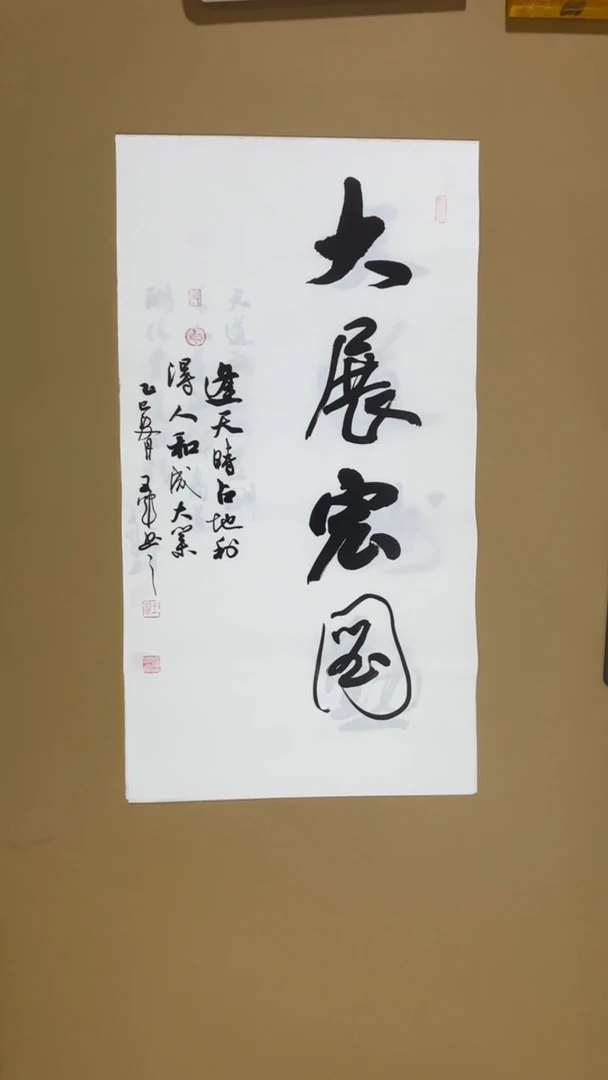 大展宏圖
逢天時占地利
得人和成大業
乙巳